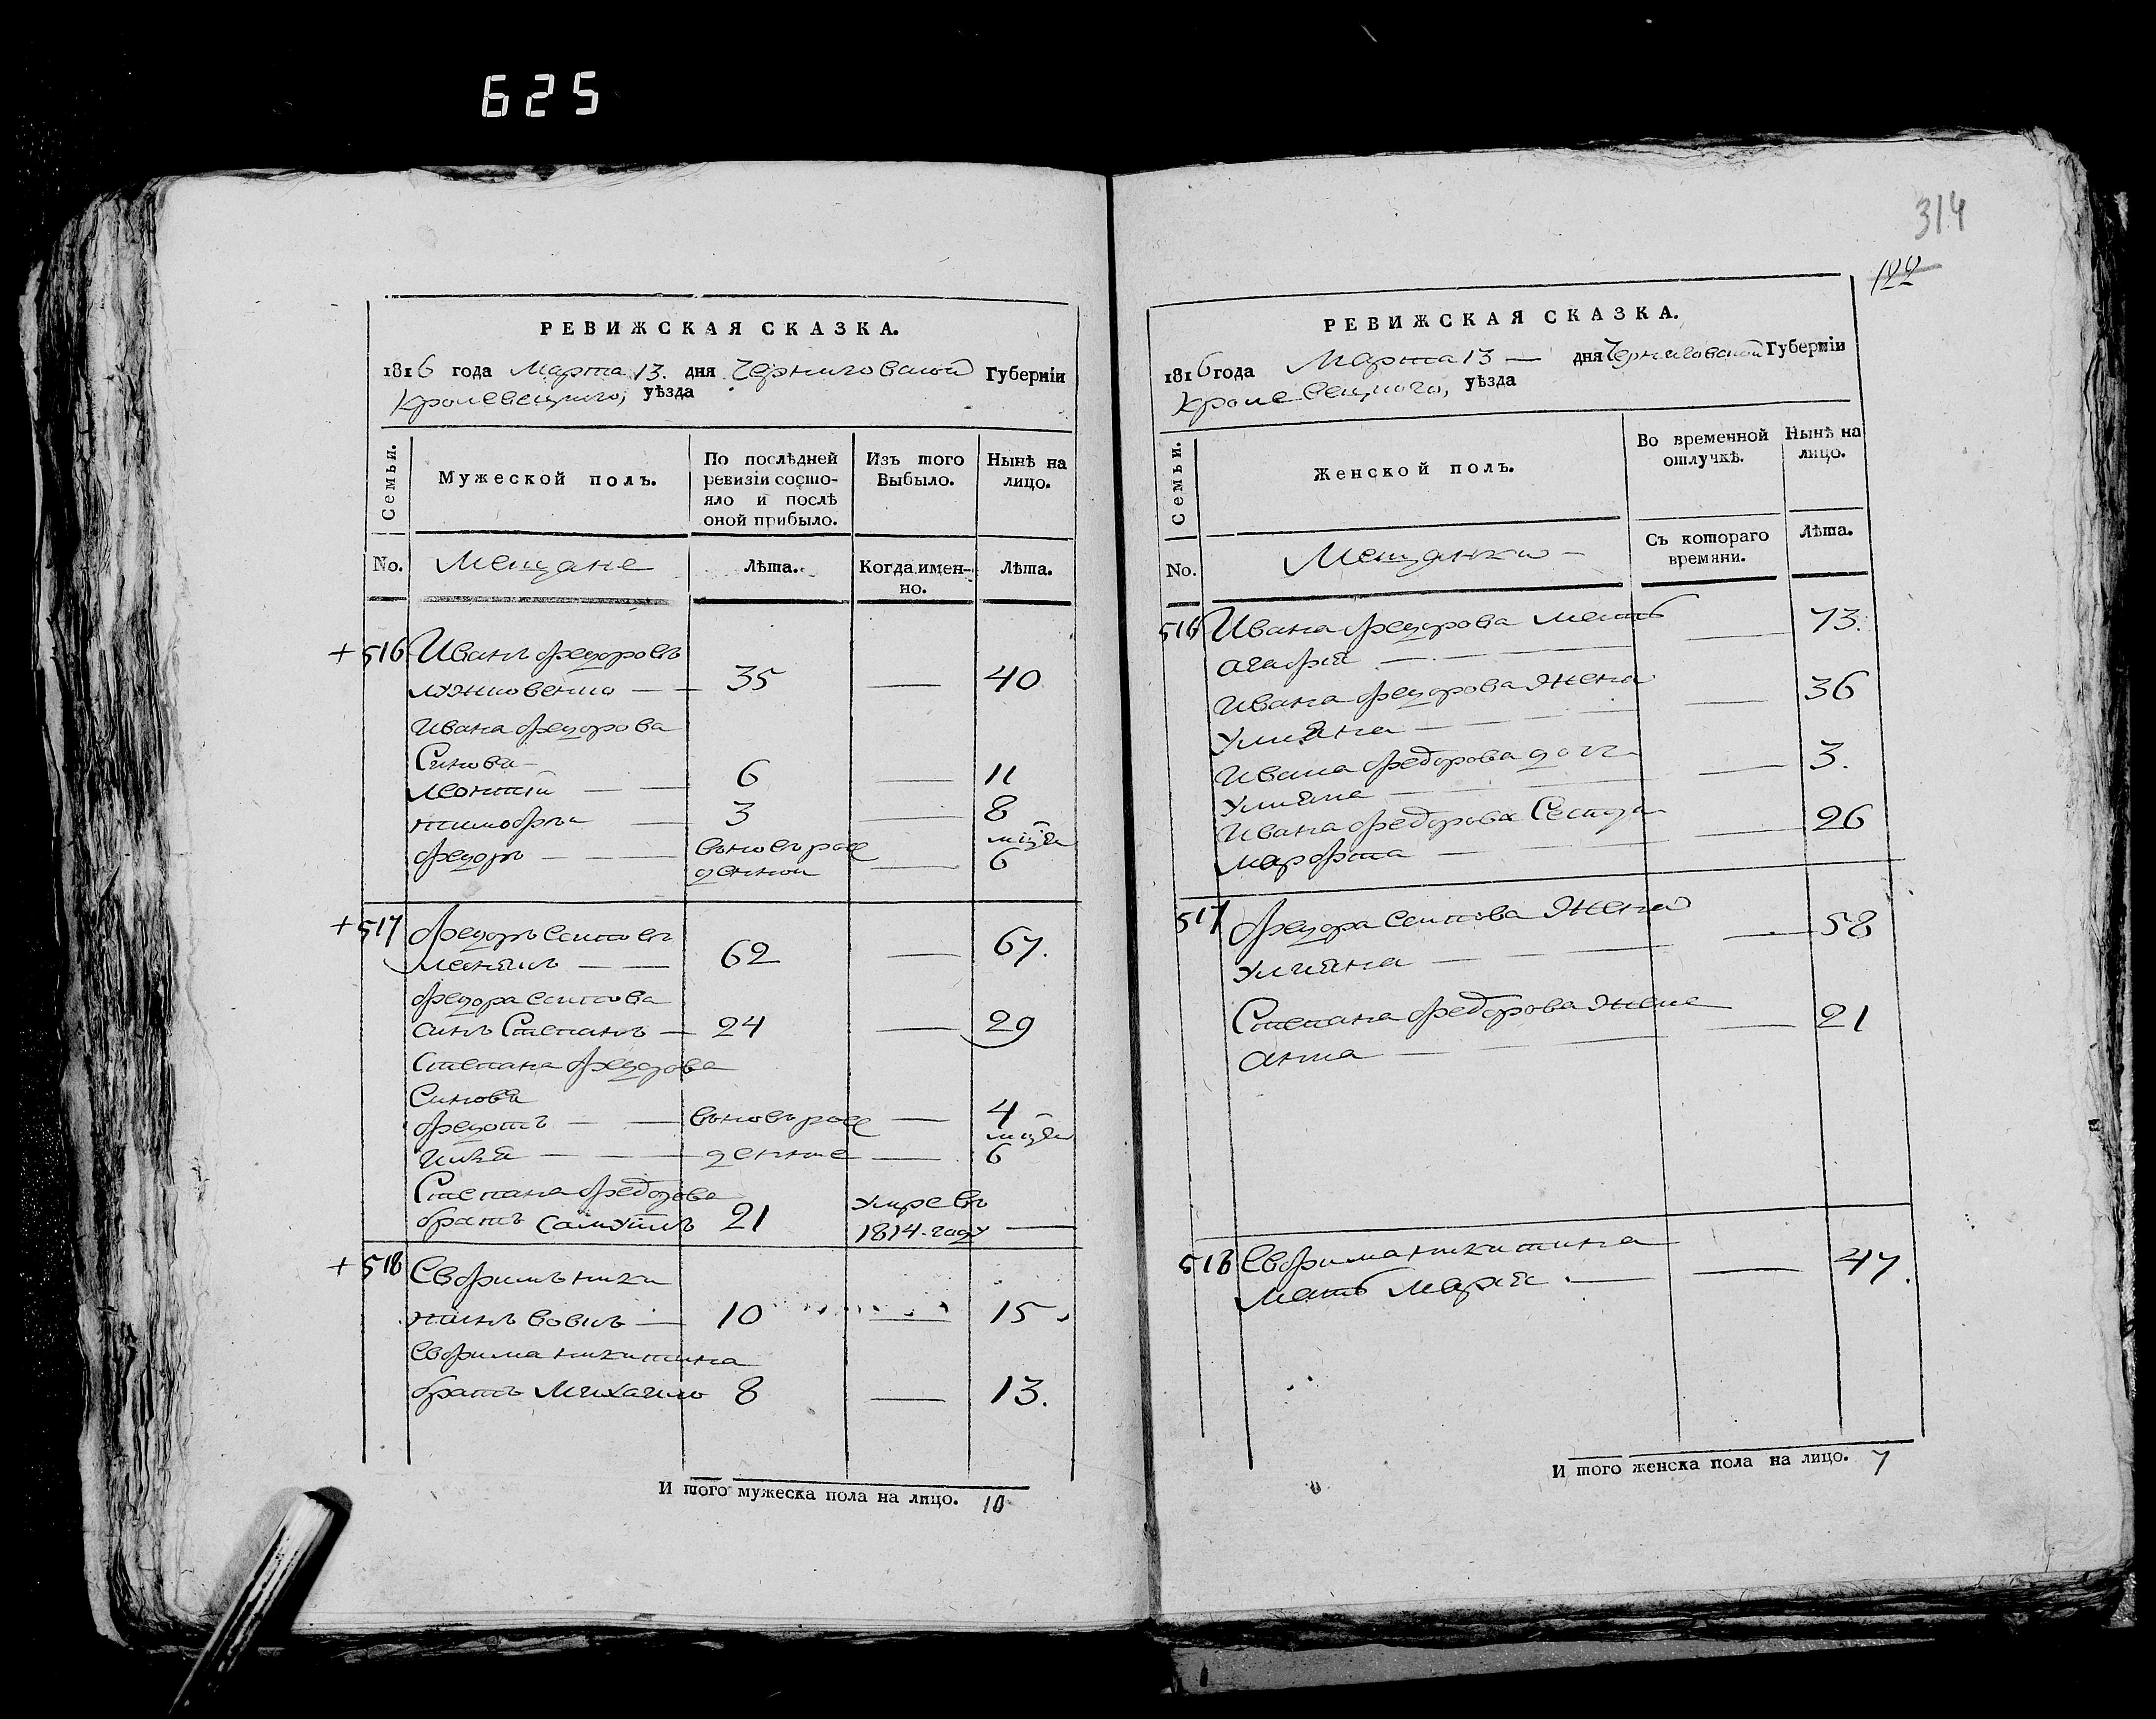 625
314
122
РЕВИЖСКАЯ СКАЗКА.
1816 года Марта 13. дня Черниговской Губернїи
Кролевецкого, уѣзда
Семьи.
Мужеской полъ.
По послѣдней ревизїи состо-
яло и послѣ
оной прибыло.
Изъ того
Выбыло.
Нынѣ на
лицо.
No.
Мещане
Лѣта.
Когда имен-
но.
Лѣта.
+516 Иванъ Федоровъ
35 — 40
Ивана Федорова
Синови
Леонтїй — 6 — 11
Тимофѣи — 3 — 8
Федоръ — вьновърож мцеи
денной — 6
+517 Федоръ
62 — 67.
Федора
синъ Степанъ — 24 — 29
Степана Федорова
Синовя
Федотъ — вьновърож — 4
мцеи
Илїя — денние — 6
Степана Федорова Умре въ
братъ Самуилъ 21 1814-году —
+518 Евфимъ Ники
тинъ Вовкъ — 10 — 15
Евфима Никитина
братъ Михаило 8 — 13.
И того мужеска пола на лицо. 10
РЕВИЖСКАЯ СКАЗКА.
1816 года Марта 13 — дня Черниговской Губернїи
Кролевецкого, уѣзда
Семьи.
Женской полъ.
Во временной
отлучкѣ.
Нынѣ на
лицо.
No.
Мещанки —
Съ котораго
времяни.
Лѣта.
516 Ивана Федорова мать
Агафїя — 73.
Ивана Федорова жена
Улияна — 36
Ивана Федорова дочь
Улияна — 3.
Ивана Федорова Сестра
Марфа — 26
517 Федора жена
Улияна — 58
Степана Федорова жена
Анна — 21
518 Евфима Никитина
мать Марїя — 47.
И того женска пола на лицо. 7